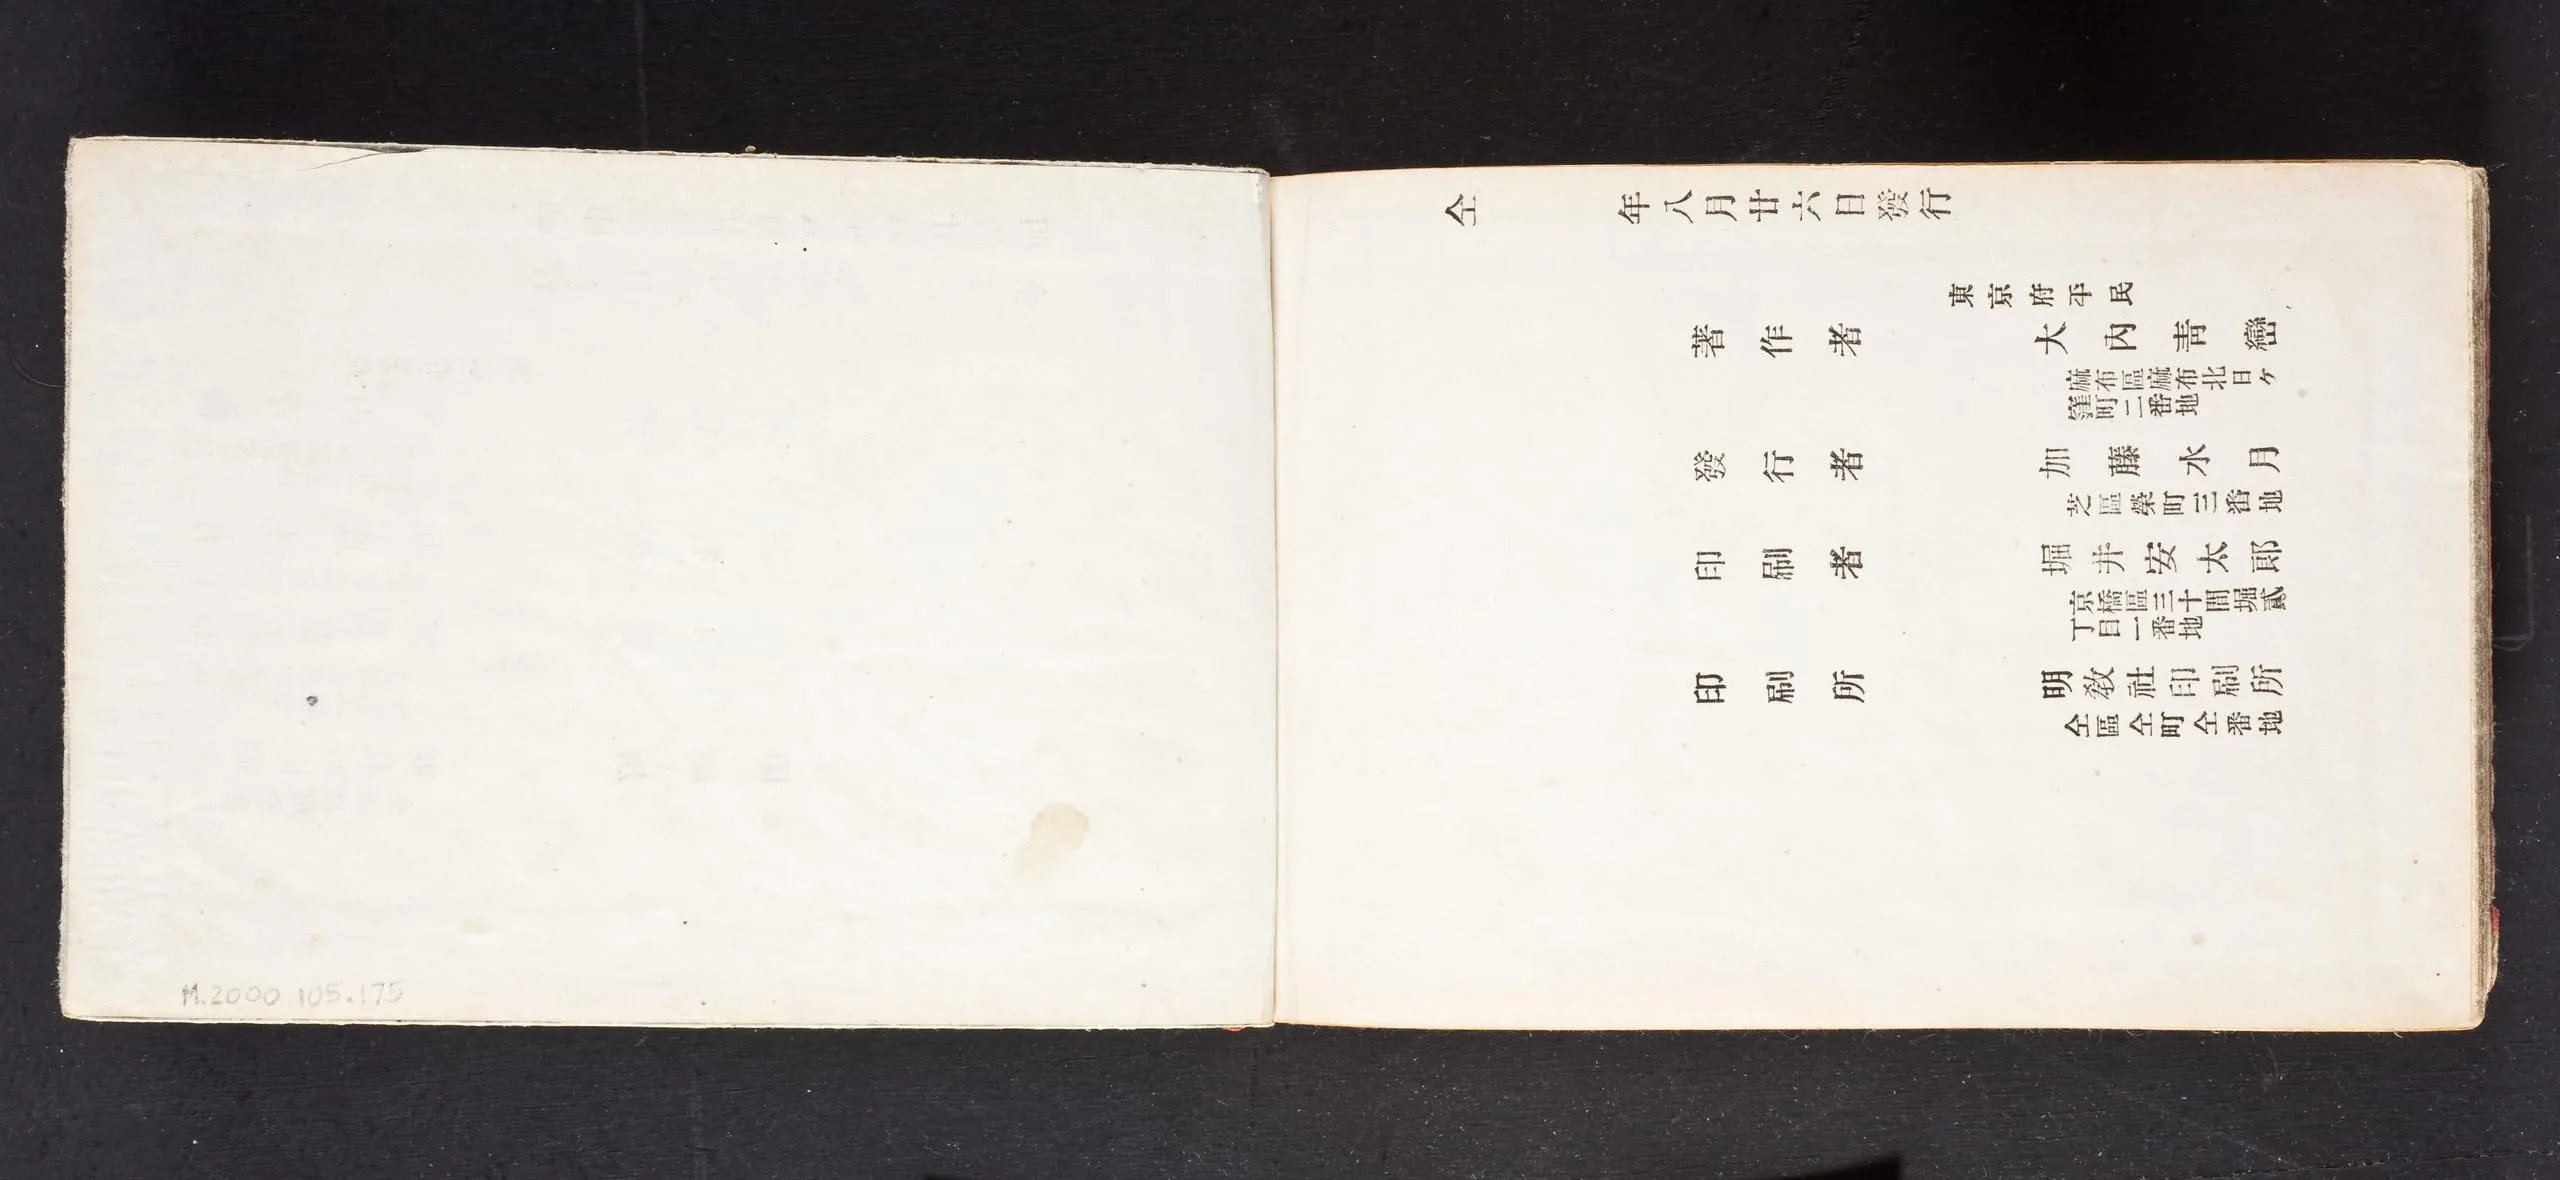 仝 年八月廿六日發行
東京府平民
著作者 大內青巒
麻布區麻布北日ヶ
窪町二番地
發行者 加藤水月
芝區榮町三番地
印刷者 堀井安太郎
京橋區三十間堀貳
丁目一番地
印刷所 明敎社印刷所
仝區仝町仝番地
M.2000.105.175